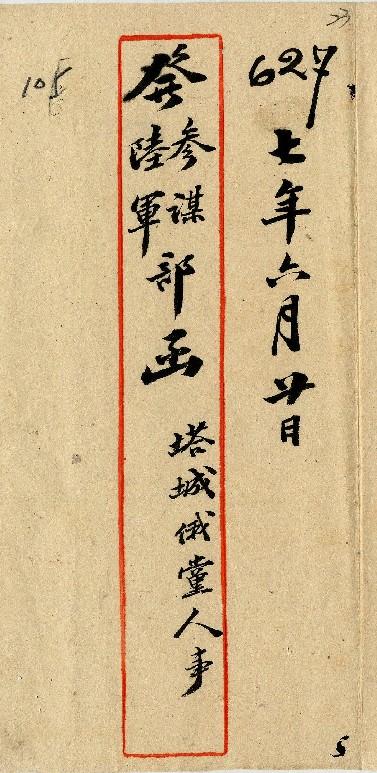 627
七年六月廿日
發參謀陸軍部函 塔城俄黨人事
5